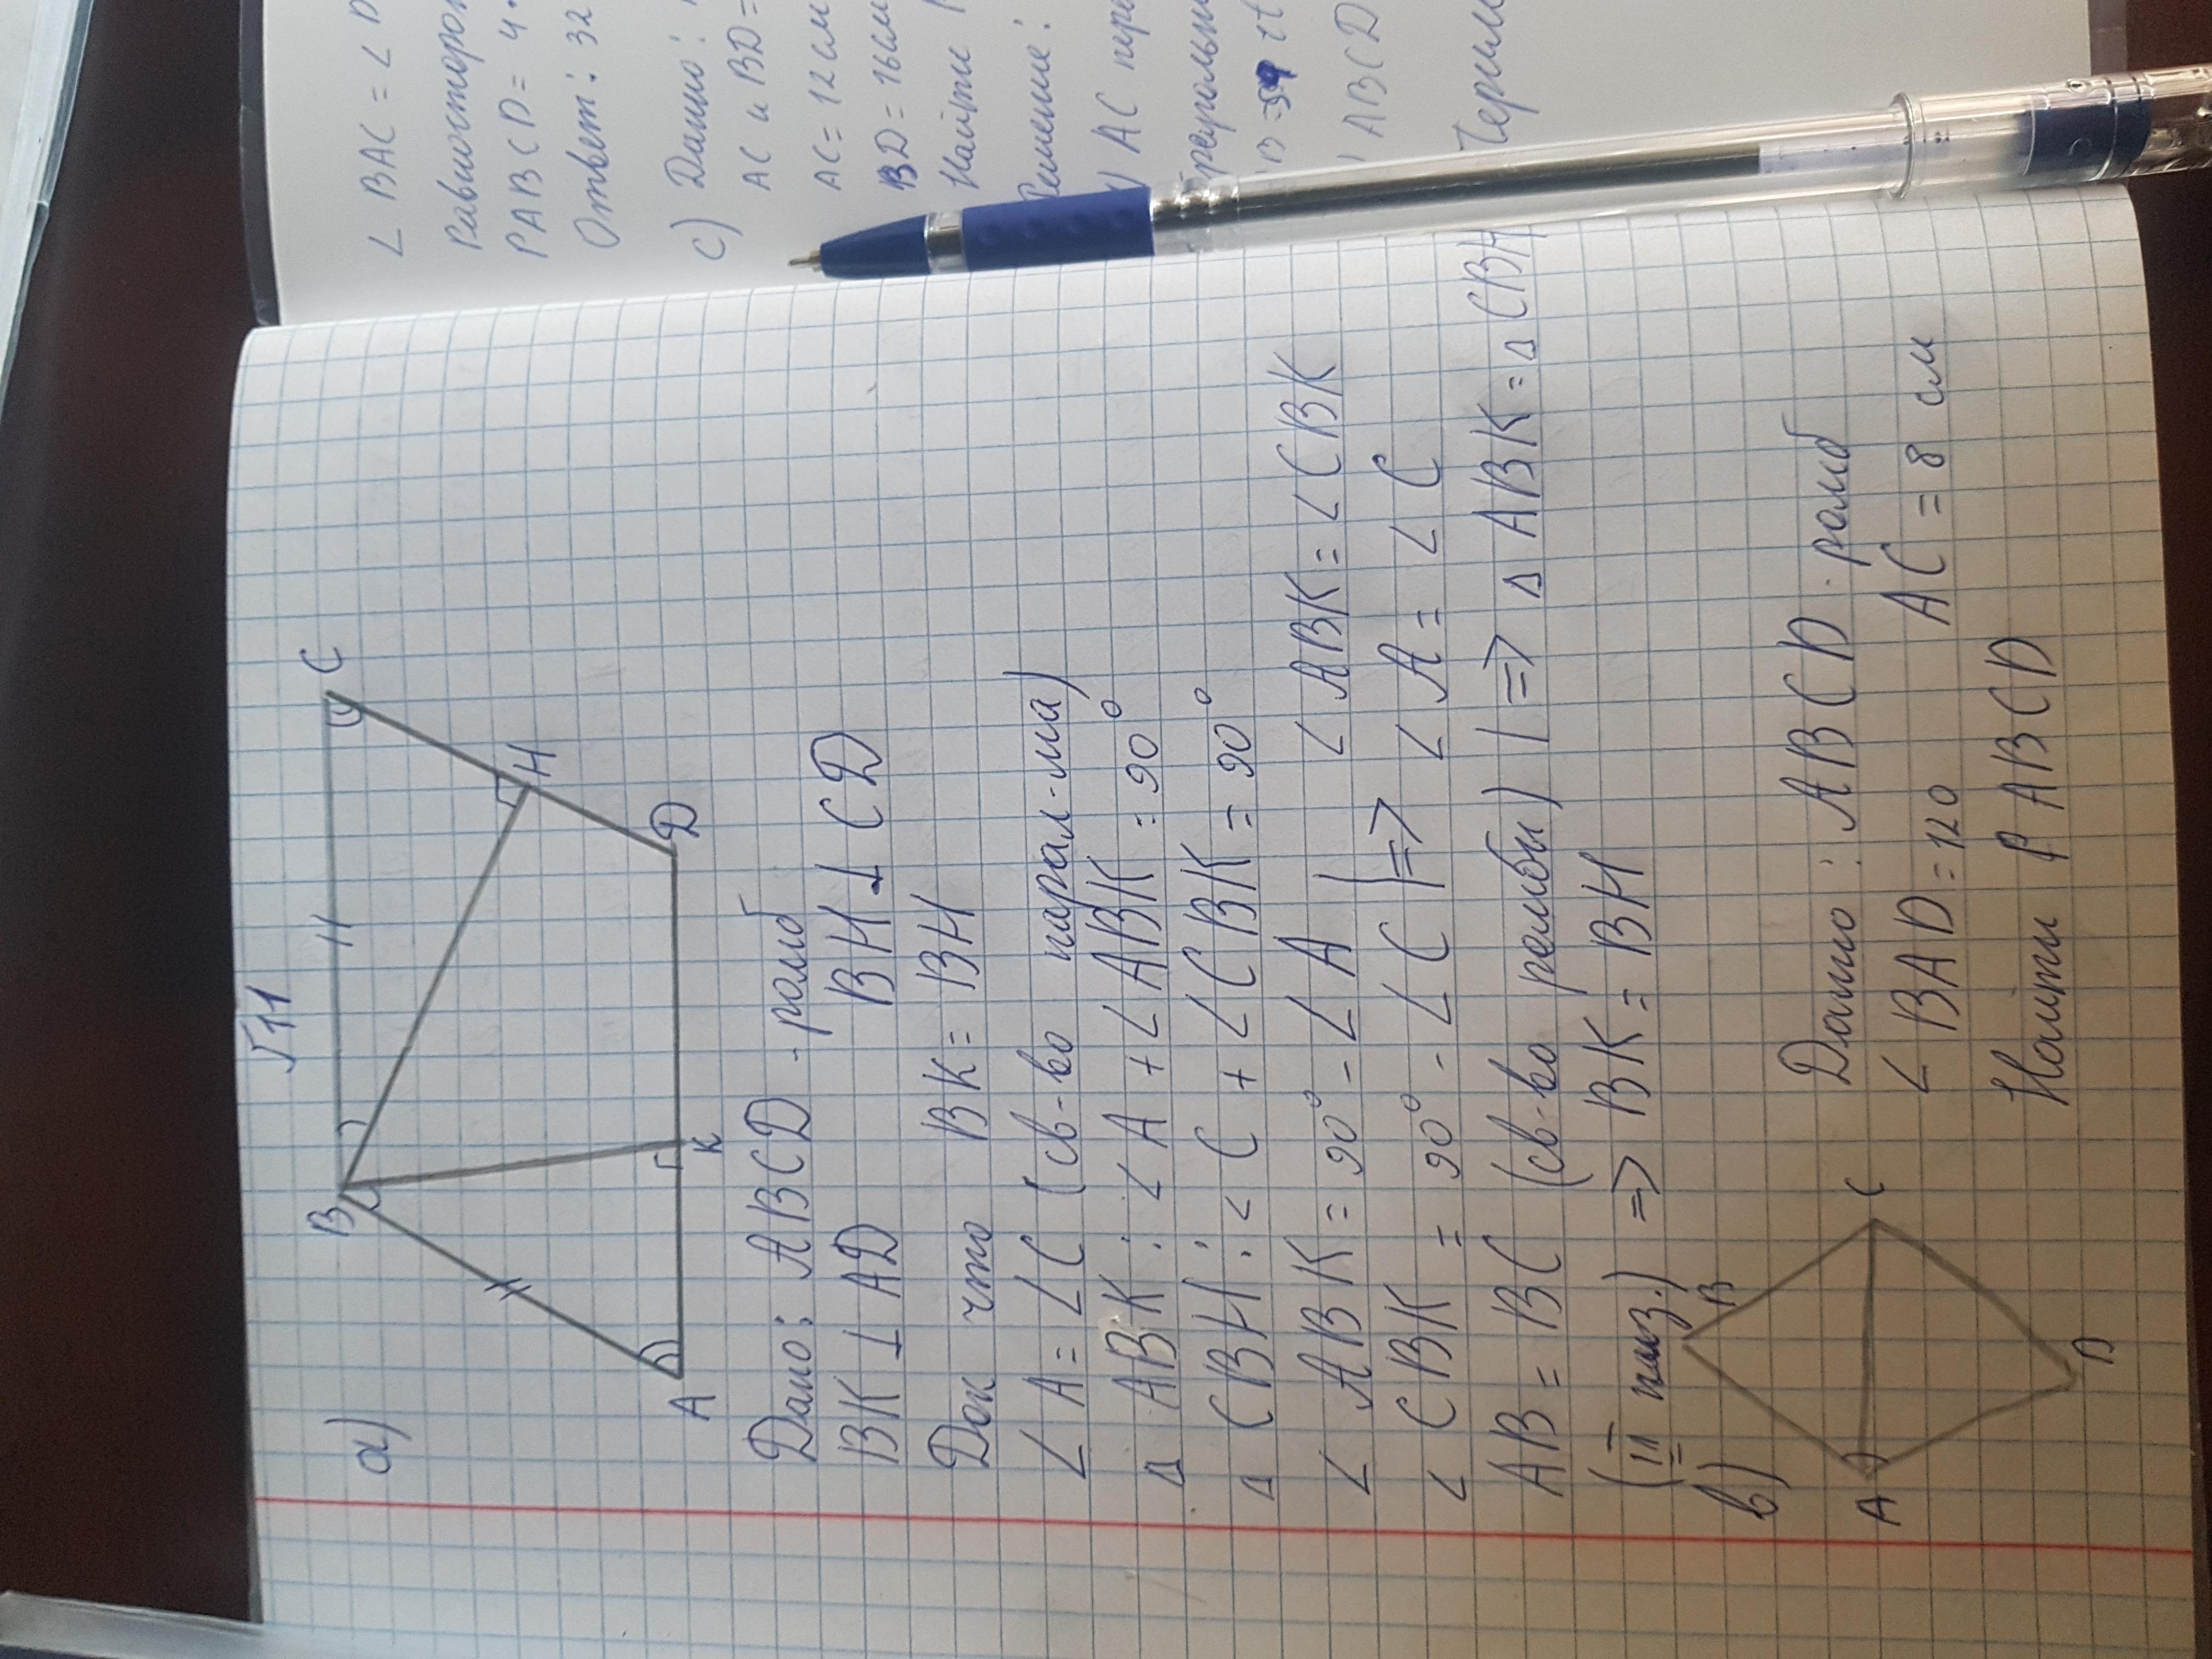 √11
а)
B
11
C
H
A
K
D
Дано: ABCD - ромб
BK ⊥ AD BH ⊥ CD
Док что BK = BH
∠ A = ∠C (св-во парал-ма)
Δ ABK: ∠ A + ∠ABK = 90°
Δ CBH: ∠ C + ∠CBK = 90°
∠ ABK = 90° - ∠ A | ∠ ABK = ∠ CBK
∠ CBK = 90° - ∠ C | => ∠ A = ∠ C
AB = BC (св-во ромбы) | => Δ ABK = Δ CBH
(II) => BK = BH
в)
B
A
C
D
Дано: ABCD - ромб
∠ BAD = 120 AC = 8 см
Найти P ABCD
∠ BAC = ∠ D
PABCD = 4 ·
Ответ: 32
с) Дано:
AC и BD =
AC = 12 см
BD = 16 см
Найти
AC
ABCD